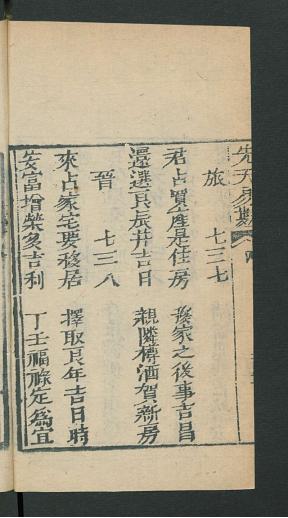 先天易數
旅　七三七
君占買產是住房　發家之後事吉昌
還選良辰并吉日　親隣樽酒賀新房
晉　七三八
來占家宅要移居　擇取良年吉日時
安富增榮多吉利　丁壬福祿定為宜